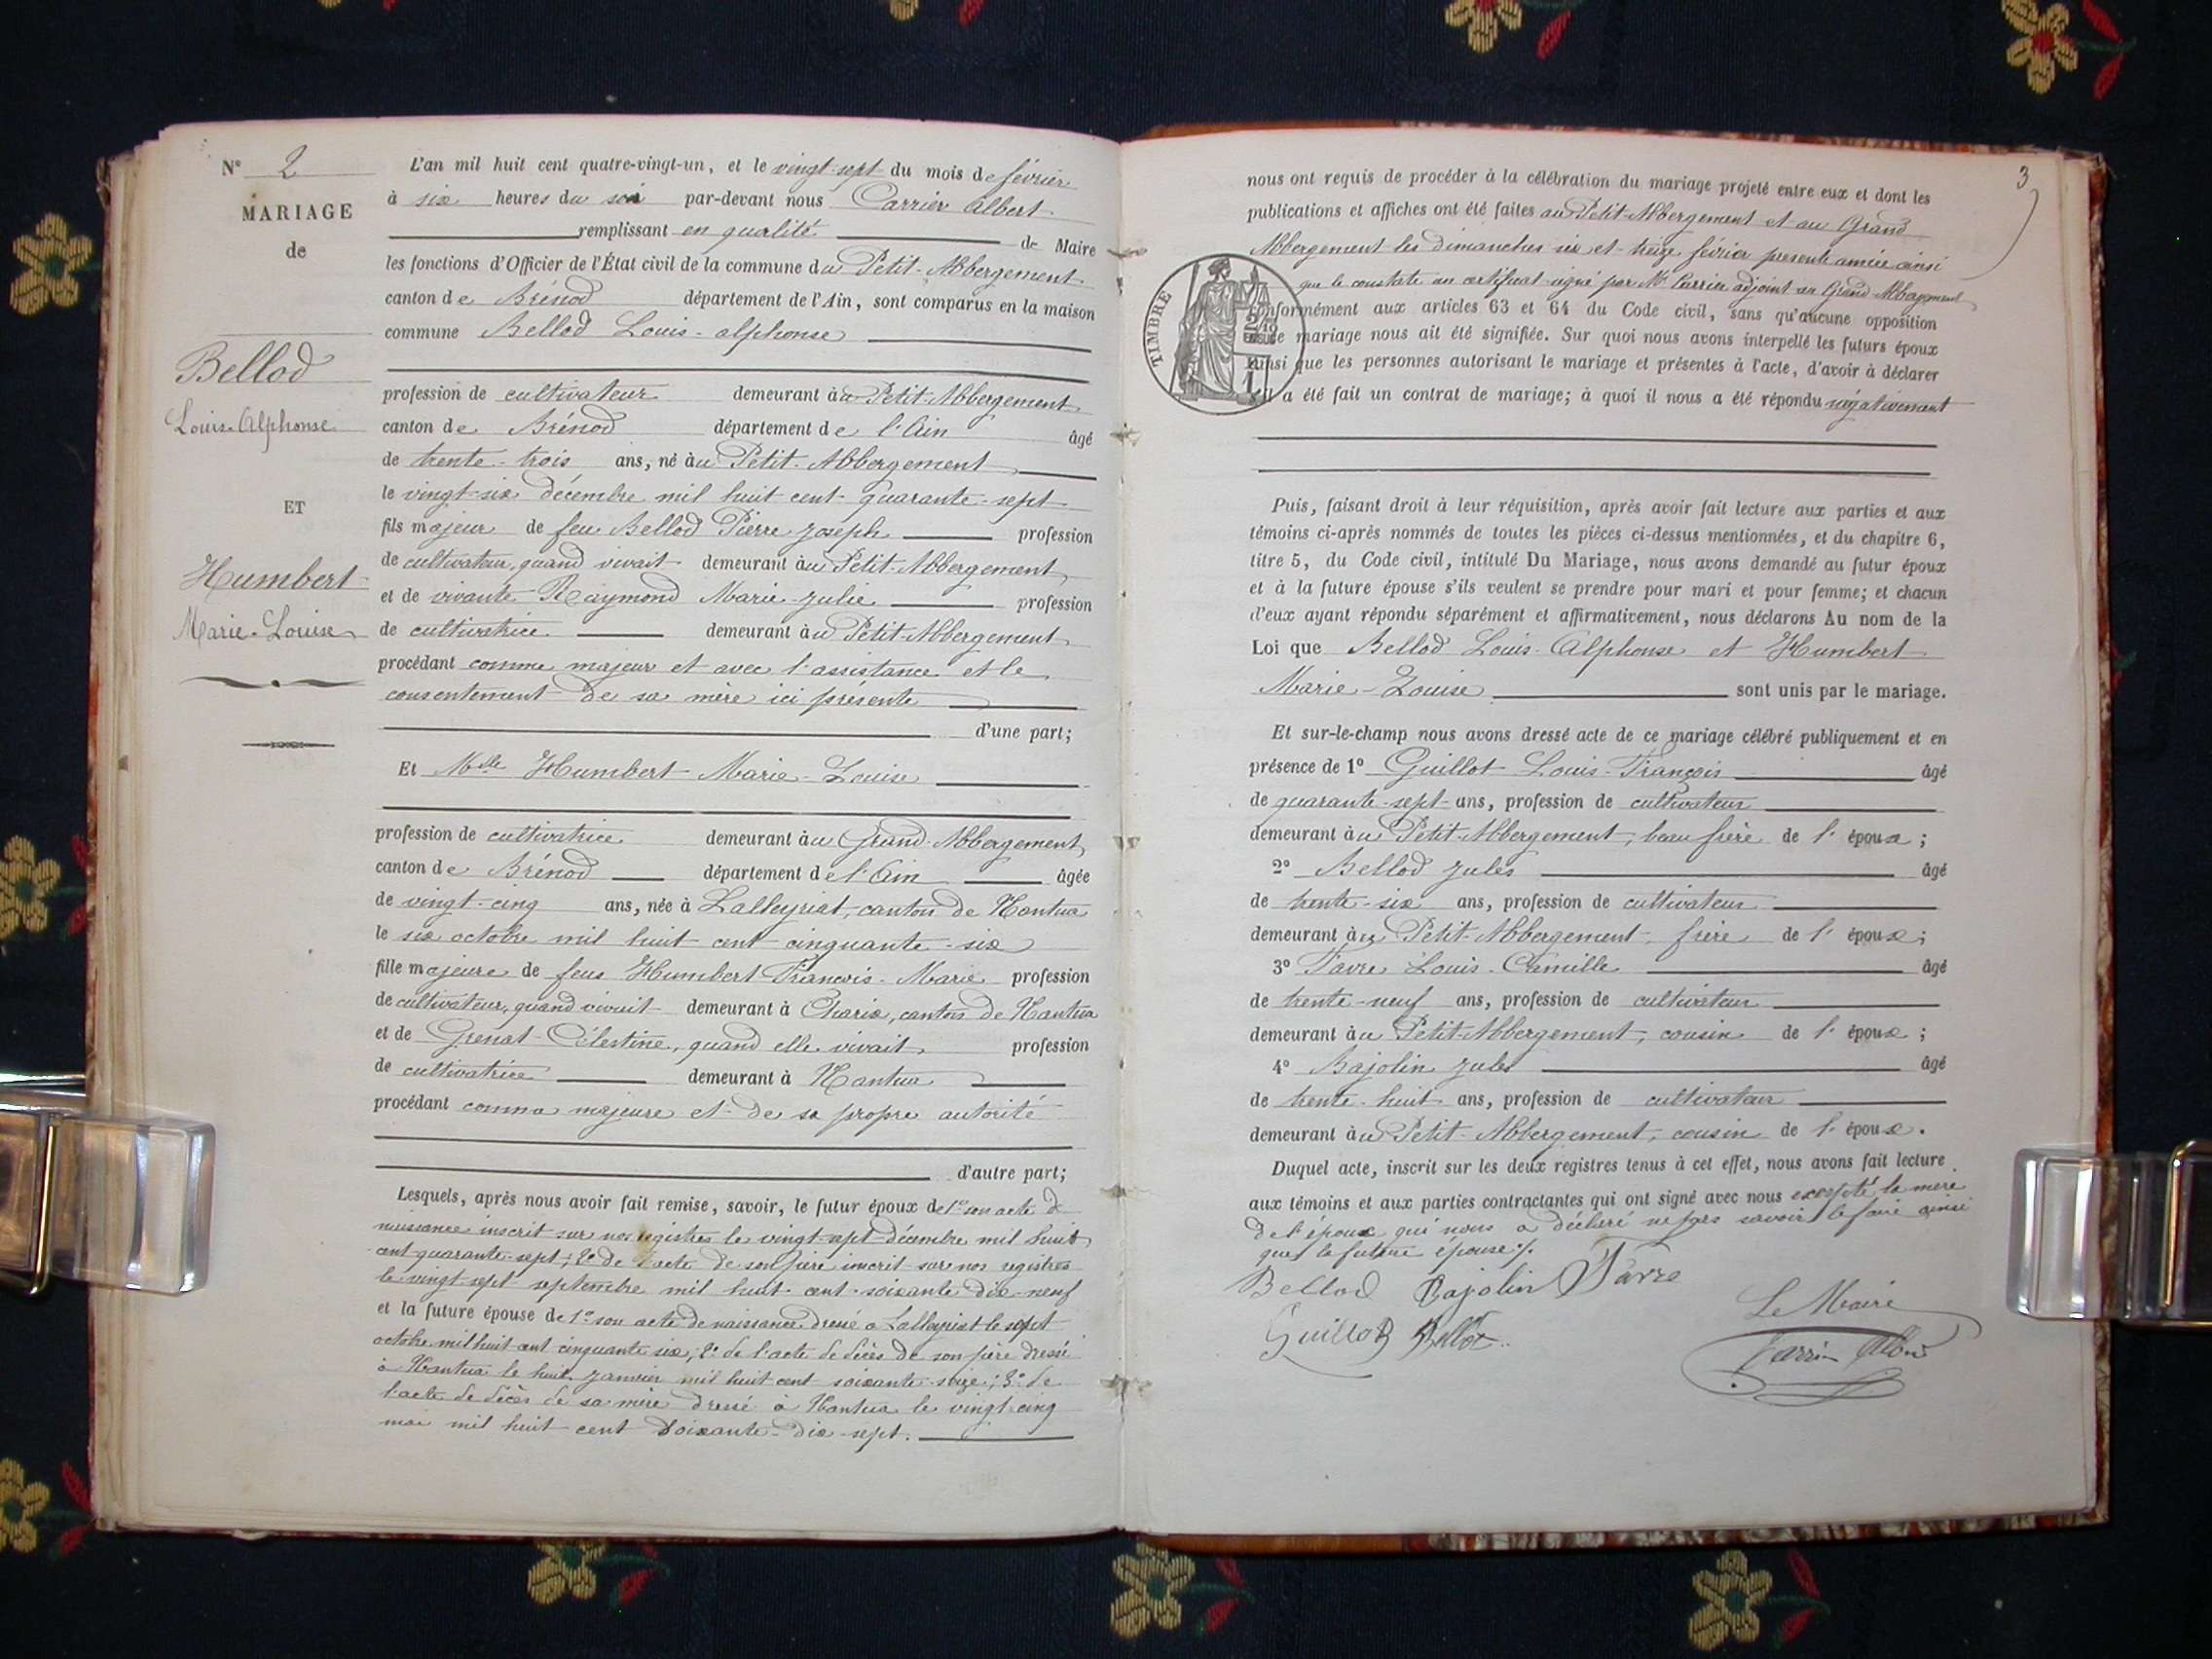 N° 2
MARIAGE
de
Bellod
Louis-Alphonse
ET
Humbert
Marie-Louise
L'an mil huit cent quatre-vingt-un, et le vingt-sept du mois de février
à six heures du soir par-devant nous Carrier Albert
remplissant en qualité de Maire
les fonctions d'Officier de l'État civil de la commune du Petit-Abbergement
canton de Brénod département de l'Ain, sont comparus en la maison
commune Bellod Louis-alphonse
profession de cultivateur demeurant au Petit-Abbergement
canton de Brénod département de l'Ain âgé
de trente-trois ans, né au Petit-Abbergement
le vingt-six décembre mil huit cent quarante-sept
fils majeur de feu Bellod Pierre Joseph profession
de cultivateur, quand vivait demeurant au Petit-Abbergement
et de vivante Raymond Marie-Julie profession
de cultivatrice demeurant au Petit-Abbergement
procédant comme majeur et avec l'assistance et le
consentement de sa mère ici présente
d'une part;
Et Mlle Humbert Marie-Louise
profession de cultivatrice demeurant au Grand-Abbergement
canton de Brénod département de l'Ain âgée
de vingt-cinq ans, née à Lalleyriat, canton de Nantua
le six octobre mil huit cent cinquante-six
fille majeure de feus Humbert François-Marie profession
de cultivateur, quand vivait demeurant à Charix, canton de Nantua
et de Grenat Célestine, quand elle vivait, profession
de cultivatrice demeurant à Nantua
procédant comme majeure et de sa propre autorité
d'autre part;
Lesquels, après nous avoir fait remise, savoir, le futur époux de 1° son acte de
naissance inscrit sur nos registres le vingt-sept décembre mil huit
cent quarante-sept; 2° de l'acte de son père inscrit sur nos registres
le vingt-sept septembre mil huit cent soixante dix-neuf
et la future épouse de 1° son acte de naissance dressé à Lalleyriat le sept
octobre mil huit cent cinquante six; 2° de l'acte de décès de son père dressé
à Nantua le huit janvier mil huit cent soixante-seize; 3° de
l'acte de décès de sa mère dressé à Nantua le vingt-cinq
mai mil huit cent soixante-dix-sept.
3
nous ont requis de procéder à la célébration du mariage projeté entre eux et dont les
publications et affiches ont été faites au Petit-Abbergement et au Grand
Abbergement les dimanches six et treize février presente année ainsi
que le constate un certificat signé par Mr Carrier adjoint au Grand-Abbergement
conformément aux articles 63 et 64 du Code civil, sans qu'aucune opposition
ce mariage nous ait été signifiée. Sur quoi nous avons interpellé les futurs époux
ainsi que les personnes autorisant le mariage et présentes à l'acte, d'avoir à déclarer
s'il a été fait un contrat de mariage; à quoi il nous a été répondu négativement
TIMBRE
Puis, faisant droit à leur réquisition, après avoir fait lecture aux parties et aux
témoins ci-après nommés de toutes les pièces ci-dessus mentionnées, et du chapitre 6,
titre 5, du Code civil, intitulé Du Mariage, nous avons demandé au futur époux
et à la future épouse s'ils veulent se prendre pour mari et pour femme; et chacun
d'eux ayant répondu séparément et affirmativement, nous déclarons Au nom de la
Loi que Bellod Louis-Alphonse et Humbert
Marie-Louise sont unis par le mariage.
Et sur-le-champ nous avons dressé acte de ce mariage célébré publiquement et en
présence de 1° Guillot Louis-François âgé
de quarante-sept ans, profession de cultivateur
demeurant au Petit-Abbergement, beau frère de l'époux;
2° Bellod Jules âgé
de trente-six ans, profession de cultivateur
demeurant au Petit-Abbergement, frère de l'époux;
3° Favre Louis-Camille âgé
de trente-neuf ans, profession de cultivateur
demeurant au Petit-Abbergement, cousin de l'époux;
4° Bajolin Jules âgé
de trente-huit ans, profession de cultivateur
demeurant au Petit-Abbergement, cousin de l'époux.
Duquel acte, inscrit sur les deux registres tenus à cet effet, nous avons fait lecture
aux témoins et aux parties contractantes qui ont signé avec nous excepté la mère
de l'époux qui nous a déclaré ne pas savoir le faire ainsi
que la future épouse ./.
Bellod Bajolin Favre
Le Maire
Guillot Bellod
Carrier Albert